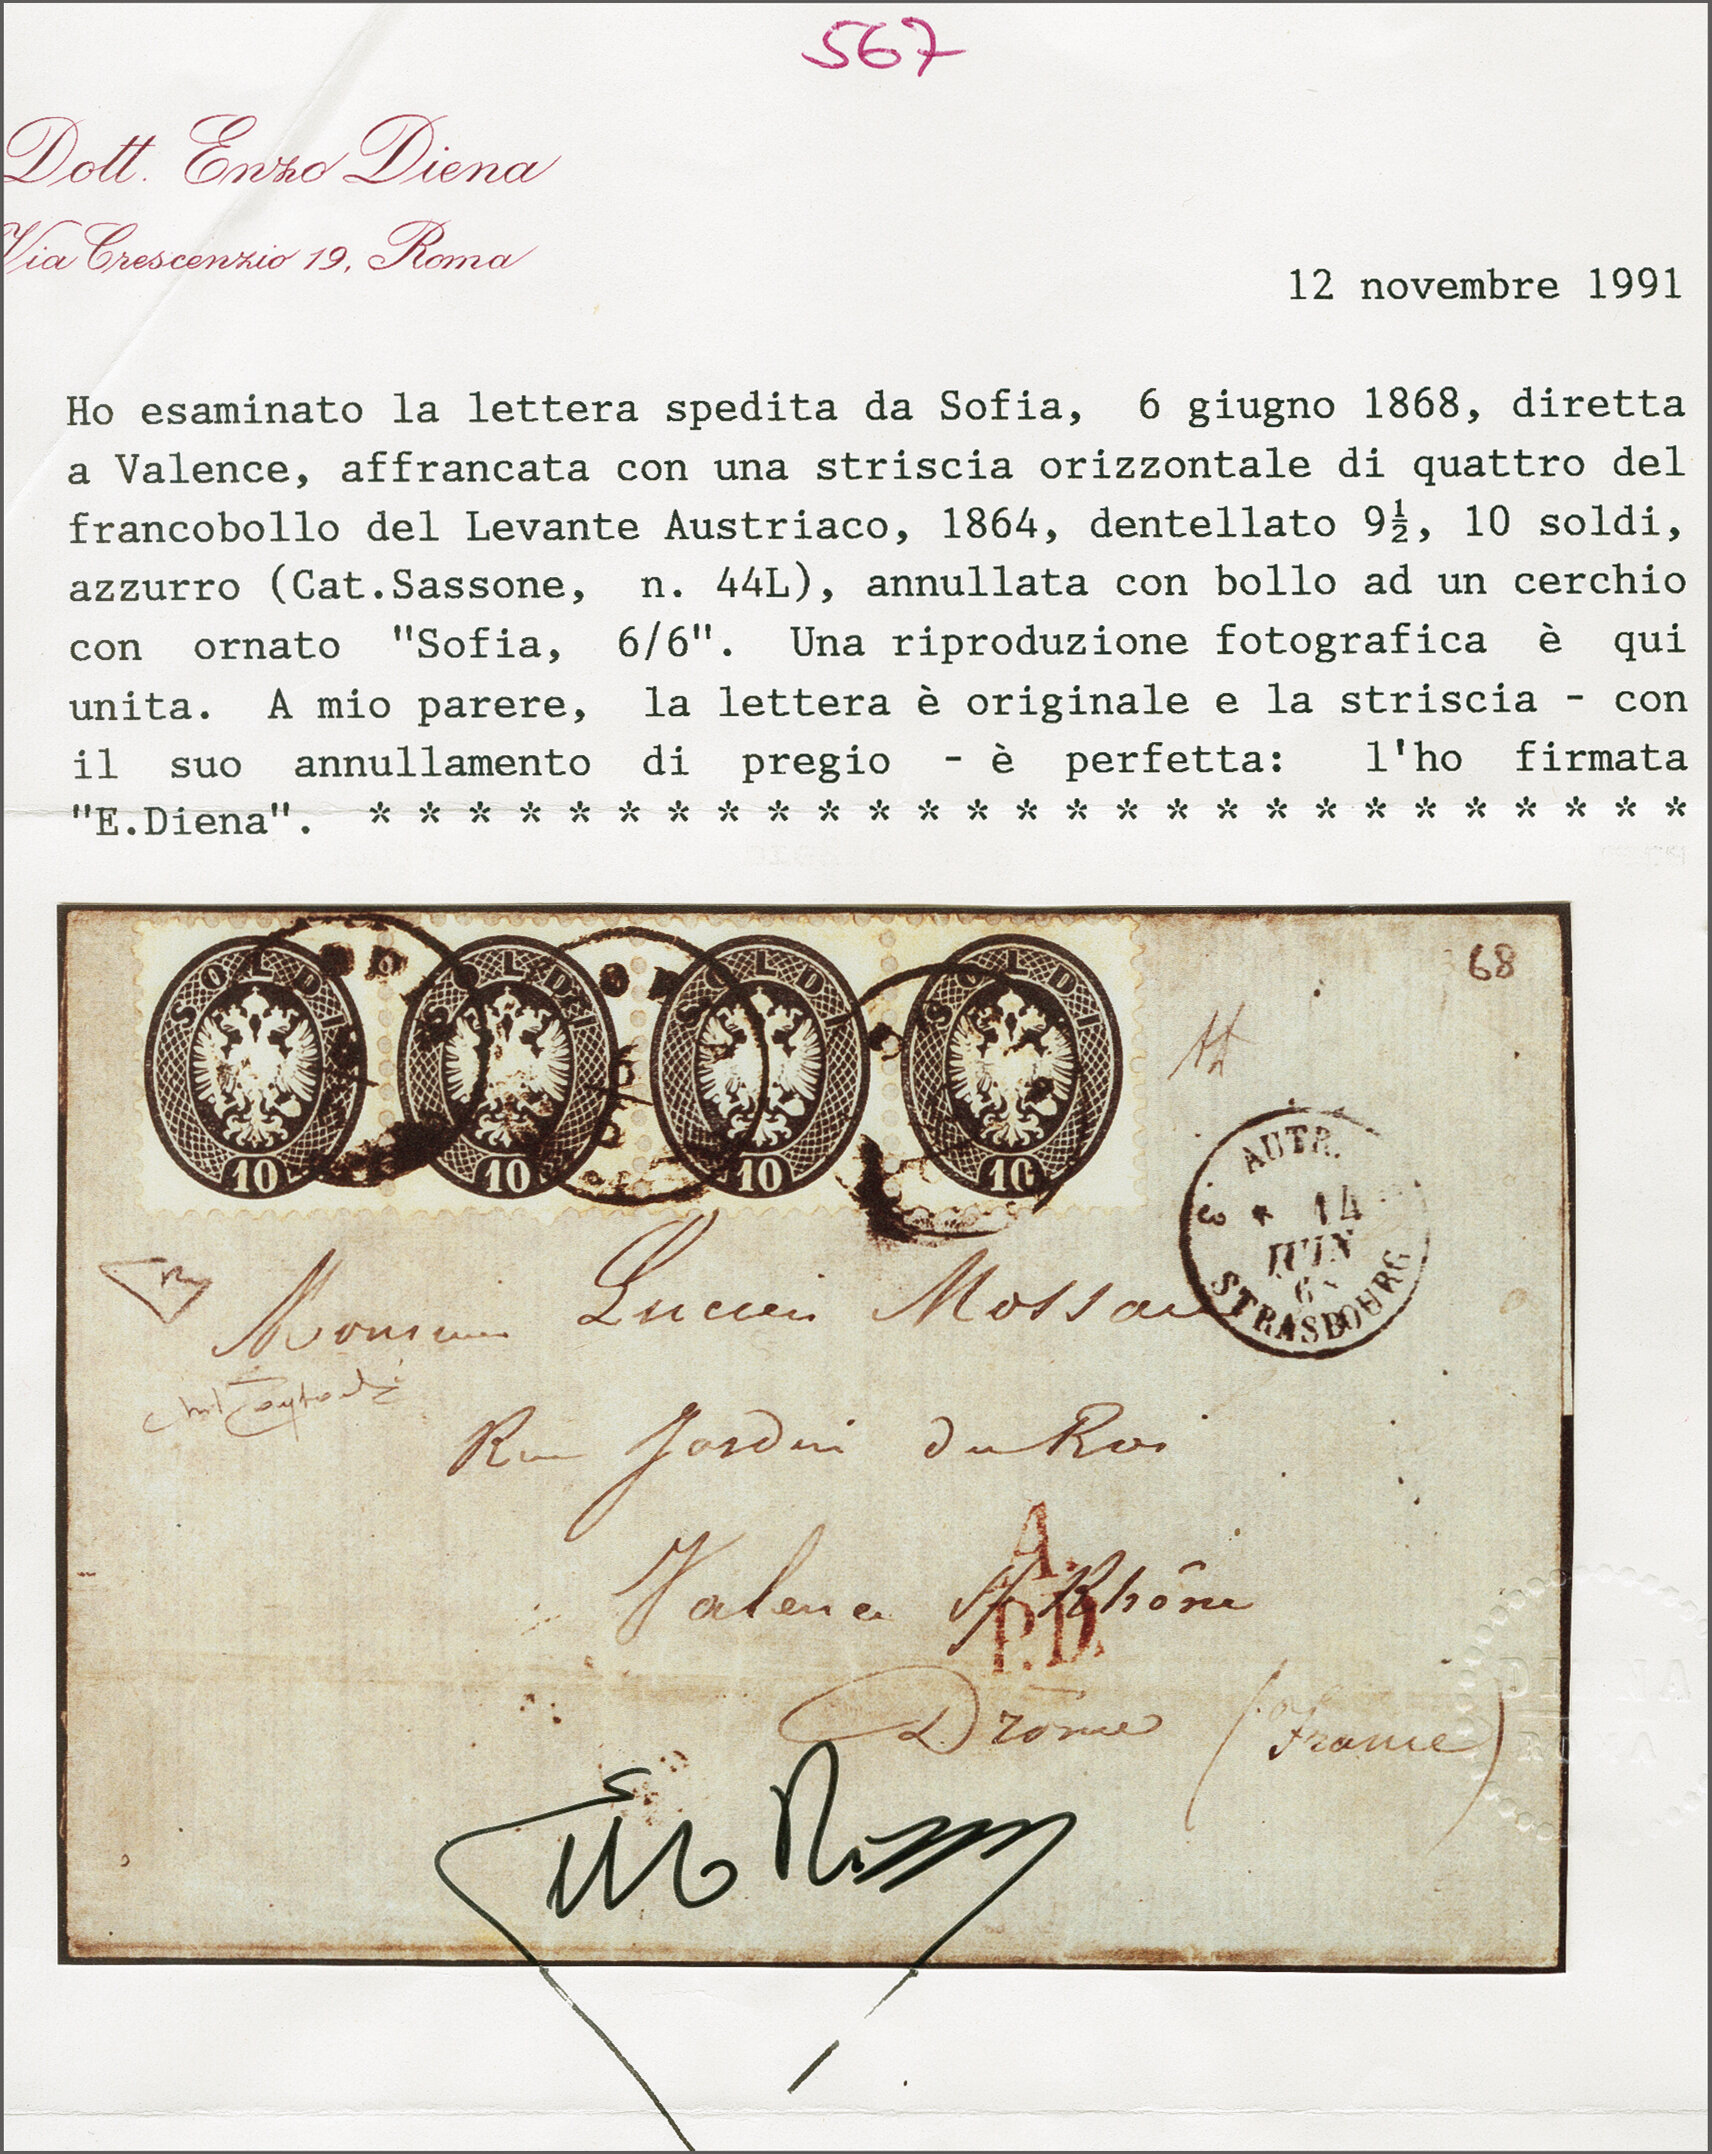 567
Dott. Enzo Diena
Via Crescenzio 19, Roma
12 novembre 1991
Ho esaminato la lettera spedita da Sofia, 6 giugno 1868, diretta
a Valence, affrancata con una striscia orizzontale di quattro del
francobollo del Levante Austriaco, 1864, dentellato 9½, 10 soldi,
azzurro (Cat.Sassone, n. 44L), annullata con bollo ad un cerchio
con ornato "Sofia, 6/6". Una riproduzione fotografica è qui
unita. A mio parere, la lettera è originale e la striscia - con
il suo annullamento di pregio - è perfetta: l'ho firmata
"E.Diena". * * * * * * * * * * * * * * * * * * * * * * * * * * *
SOLDI SOLDI SOLDI SOLDI
10 10 10 10
68
AUTR.
3 * 14
JUIN
6
STRASBOURG
Monsieur Lucien
Rue Jardin du Roi
A.
Valence s/ Rhône
P.D.
Drôme (France)